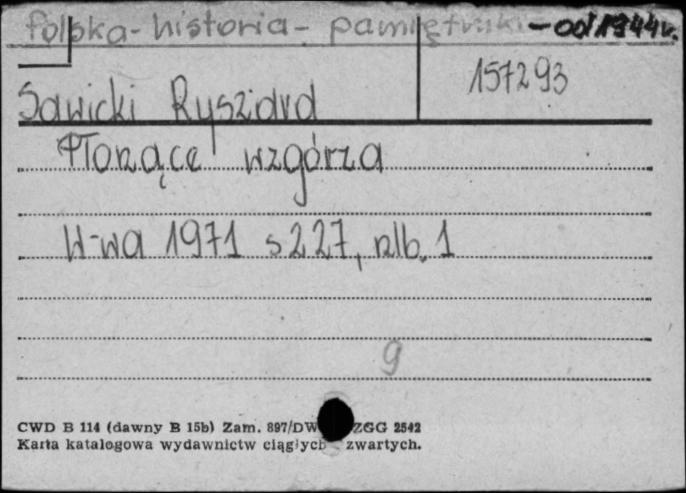 Polska - historia - pamiętniki - od 1944 r.
157293
Sawicki Ryszard
Płonące wzgórza
W-wa 1971 s 227, nlb. 1
9
CWD B 114 (dawny B 15b) Zam. 897/DW ZGG 2542
Karta katalogowa wydawnictw ciągłych zwartych.